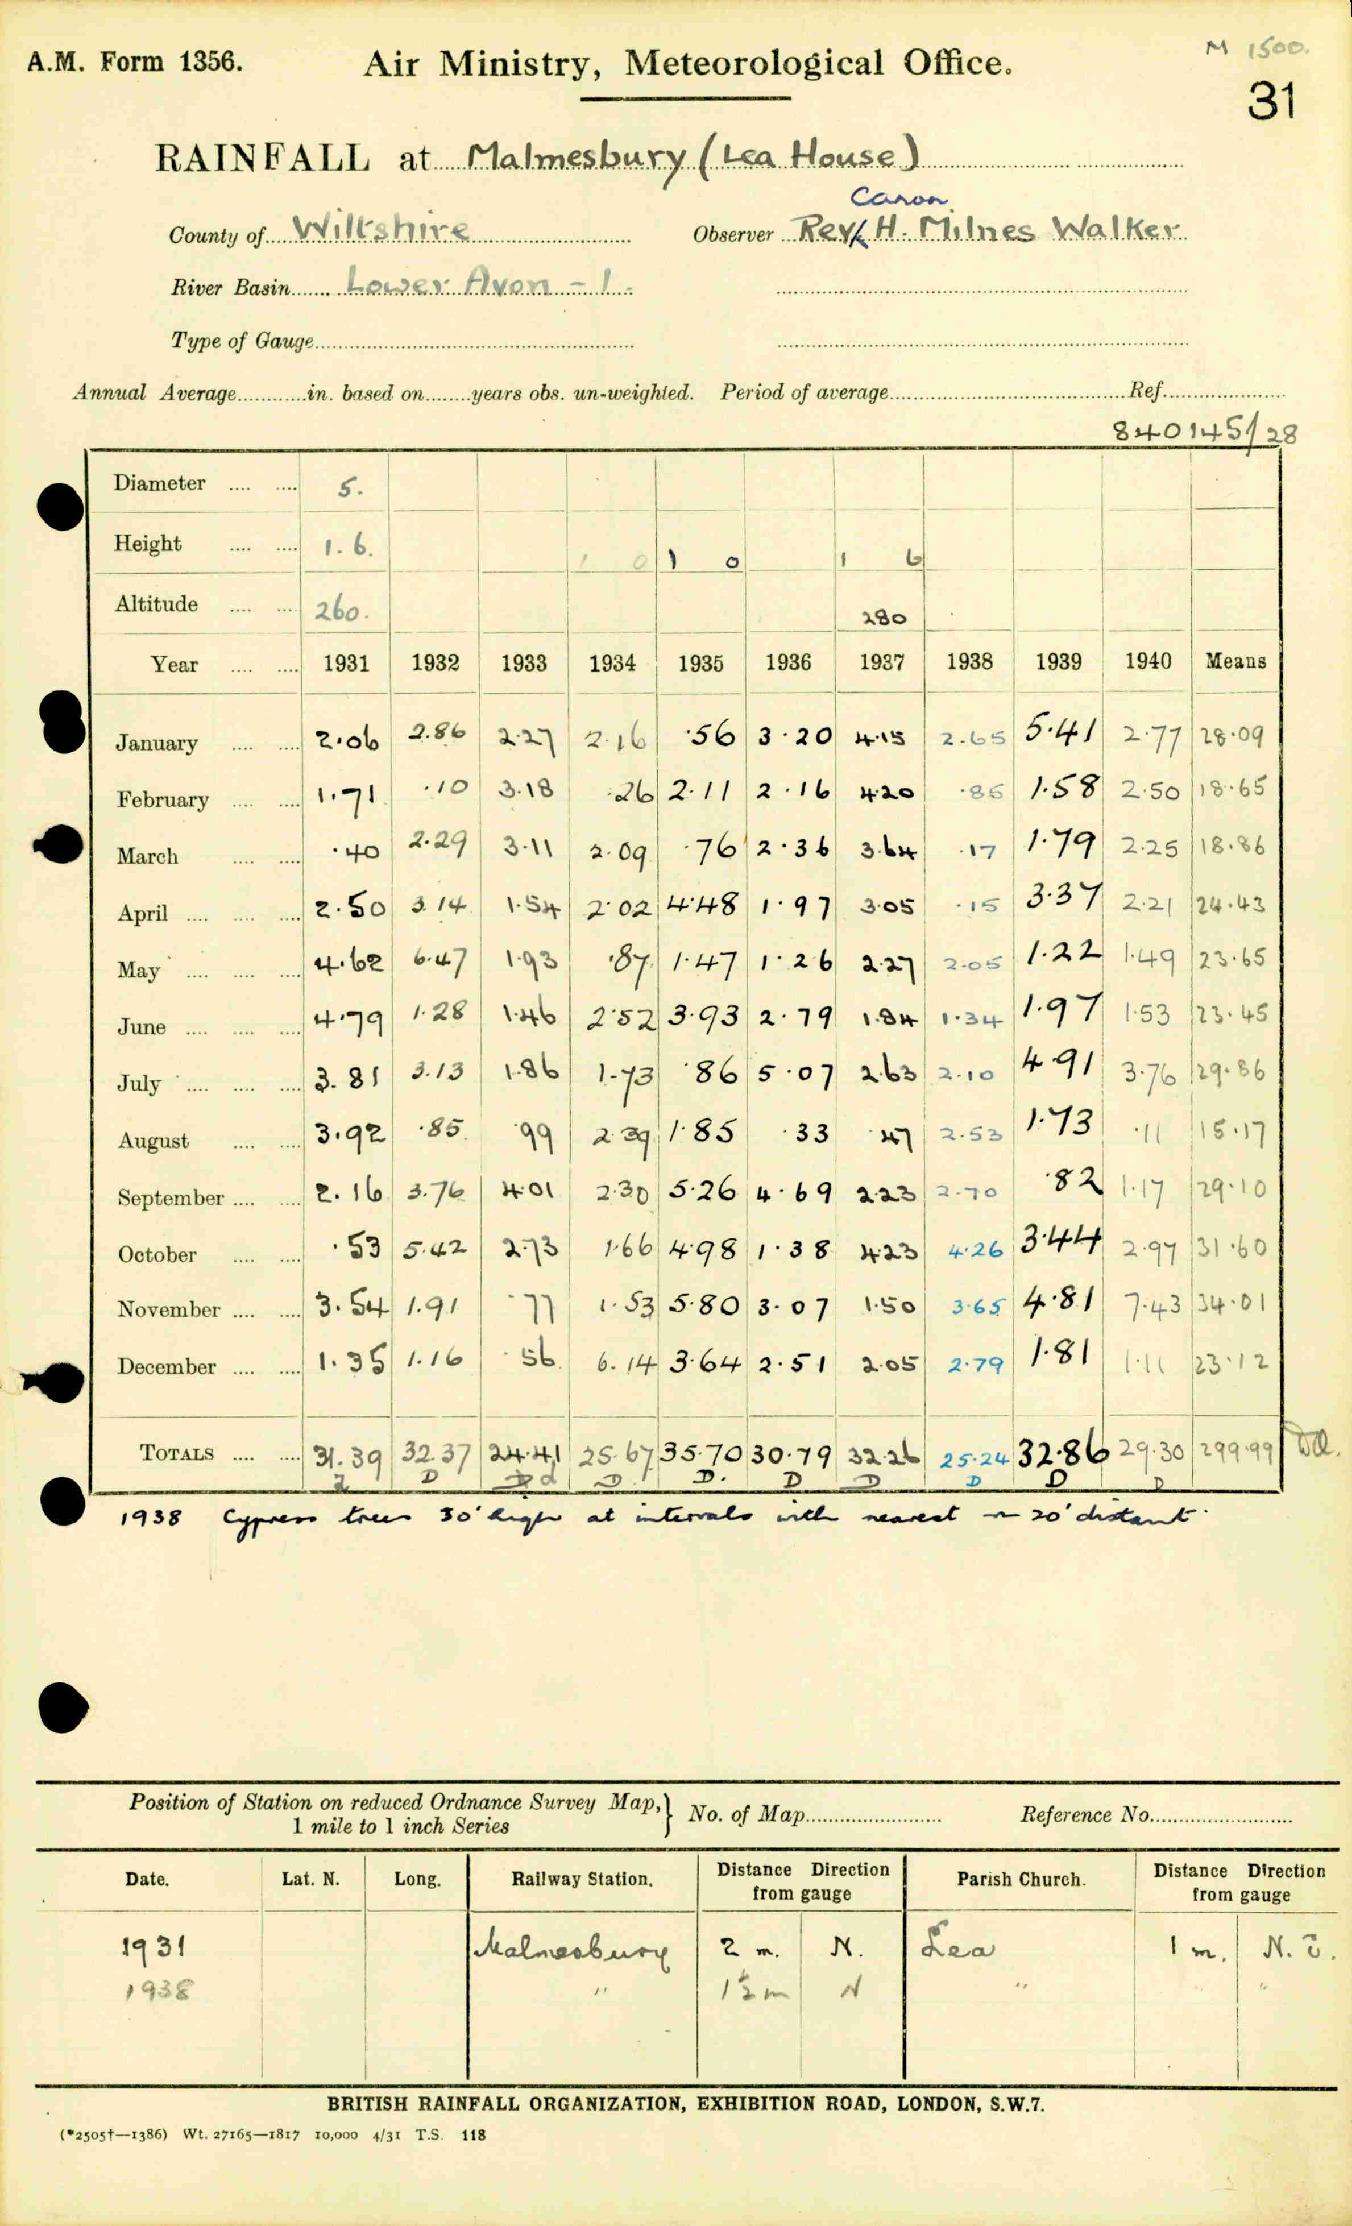 M 1500.
A.M. Form 1356. Air Ministry, Meteorological Office.
31
RAINFALL at Malmesbury (Lea House)
Canon
County of Wiltshire Observer Rev H. Milnes Walker
River Basin Lower Avon - 1.
Type of Gauge
Annual Average in. based on years obs. un-weighted. Period of average Ref.
840145/28
Diameter 5.
Height 1.6. 1 0 1 0 1 6
Altitude 260. 280
Year 1931 1932 1933 1934 1935 1936 1937 1938 1939 1940 Means
January 2.06 2.86 2.27 2.16 .56 3.20 4.15 2.65 5.41 2.77 28.09
February 1.71 .10 3.18 .26 2.11 2.16 4.20 .85 1.58 2.50 18.65
March .40 2.29 3.11 2.09 .76 2.36 3.64 .17 1.79 2.25 18.86
April 2.50 3.14 1.54 2.02 4.48 1.97 3.05 .15 3.37 2.21 24.43
May 4.62 6.47 1.93 .87 1.47 1.26 2.27 2.05 1.22 1.49 23.65
June 4.79 1.28 1.46 2.52 3.93 2.79 1.84 1.34 1.97 1.53 23.45
July 3.81 3.13 1.86 1.73 .86 5.07 2.63 2.10 4.91 3.76 29.86
August 3.92 .85 .99 2.39 1.85 .33 .47 2.53 1.73 .11 15.17
September 2.16 3.76 4.01 2.30 5.26 4.69 2.23 2.70 .82 1.17 29.10
October .53 5.42 2.73 1.66 4.98 1.38 4.23 4.26 3.44 2.97 31.60
November 3.54 1.91 .77 1.53 5.80 3.07 1.50 3.65 4.81 7.43 34.01
December 1.35 1.16 .56 6.14 3.64 2.51 2.05 2.79 1.81 1.11 23.12
TOTALS 31.39 32.37 24.41 25.67 35.70 30.79 32.26 25.24 32.86 29.30 299.99
D D d D D. D D D D D
1938 Cypress trees 30' high at intervals with nearest 20' distant.
Position of Station on reduced Ordnance Survey Map, 1 mile to 1 inch Series } No. of Map Reference No.
Date. Lat. N. Long. Railway Station. Distance Direction from gauge Parish Church. Distance Direction from gauge
1931 Malmesbury 2 m. N. Lea 1 m. N.E.
1938 " 1½ m N " "
BRITISH RAINFALL ORGANIZATION, EXHIBITION ROAD, LONDON, S.W.7.
(*2505†—1386) Wt. 27165—1817 10,000 4/31 T.S. 118